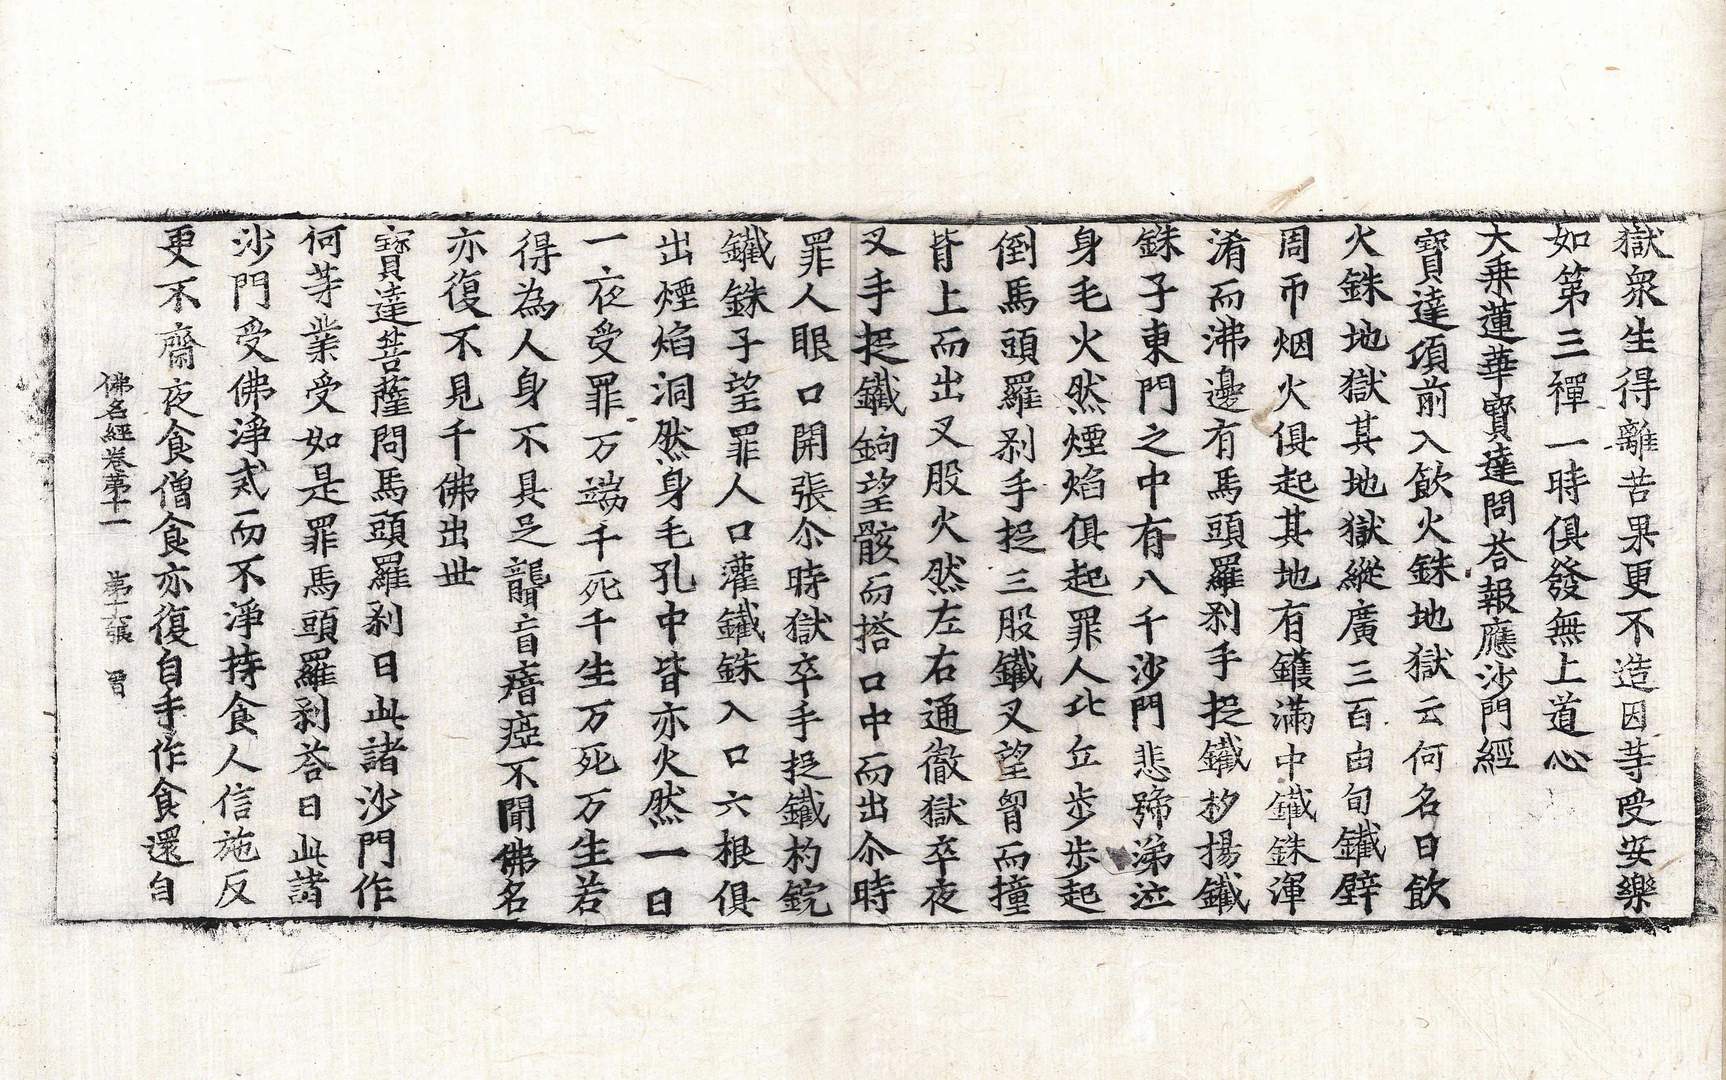 獄衆生得離苦果更不造因等受安樂
如第三禪一時俱發無上道心
大乗蓮華寶達問荅報應沙門經
寶達頃前入飲火銖地獄云何名曰飲
火銖地獄其地獄縱廣三百由旬鐵壁
周帀烟火俱起其地有鑊滿中鐵銖渾
淆而沸邊有馬頭羅刹手捉鐵杪揚鐵
銖子東門之中有八千沙門悲蹄涕泣
身毛火然煙焰俱起罪人北丘步步起
倒馬頭羅刹手捉三股鐵叉望胷而撞
背上而出叉股火然左右通徹獄卒夜
叉手捉鐵鉤望骸而搭口中而出尒時
罪人眼口開張尒時獄卒手捉鐵杓鋎
鐵銖子望罪人口灌鐵銖入口六根俱
出煙焰洞然身毛孔中皆亦火然一日
一夜受罪万端千死千生万死万生若
得為人身不具足聾盲瘖瘂不聞佛名
亦復不見千佛出世
寶達菩薩問馬頭羅刹曰此諸沙門作
何等業受如是罪馬頭羅刹荅曰此諸
沙門受佛淨戒而不淨持食人信施反
更不齋夜食僧食亦復自手作食還自
佛名經卷第十一 第十六張 晋